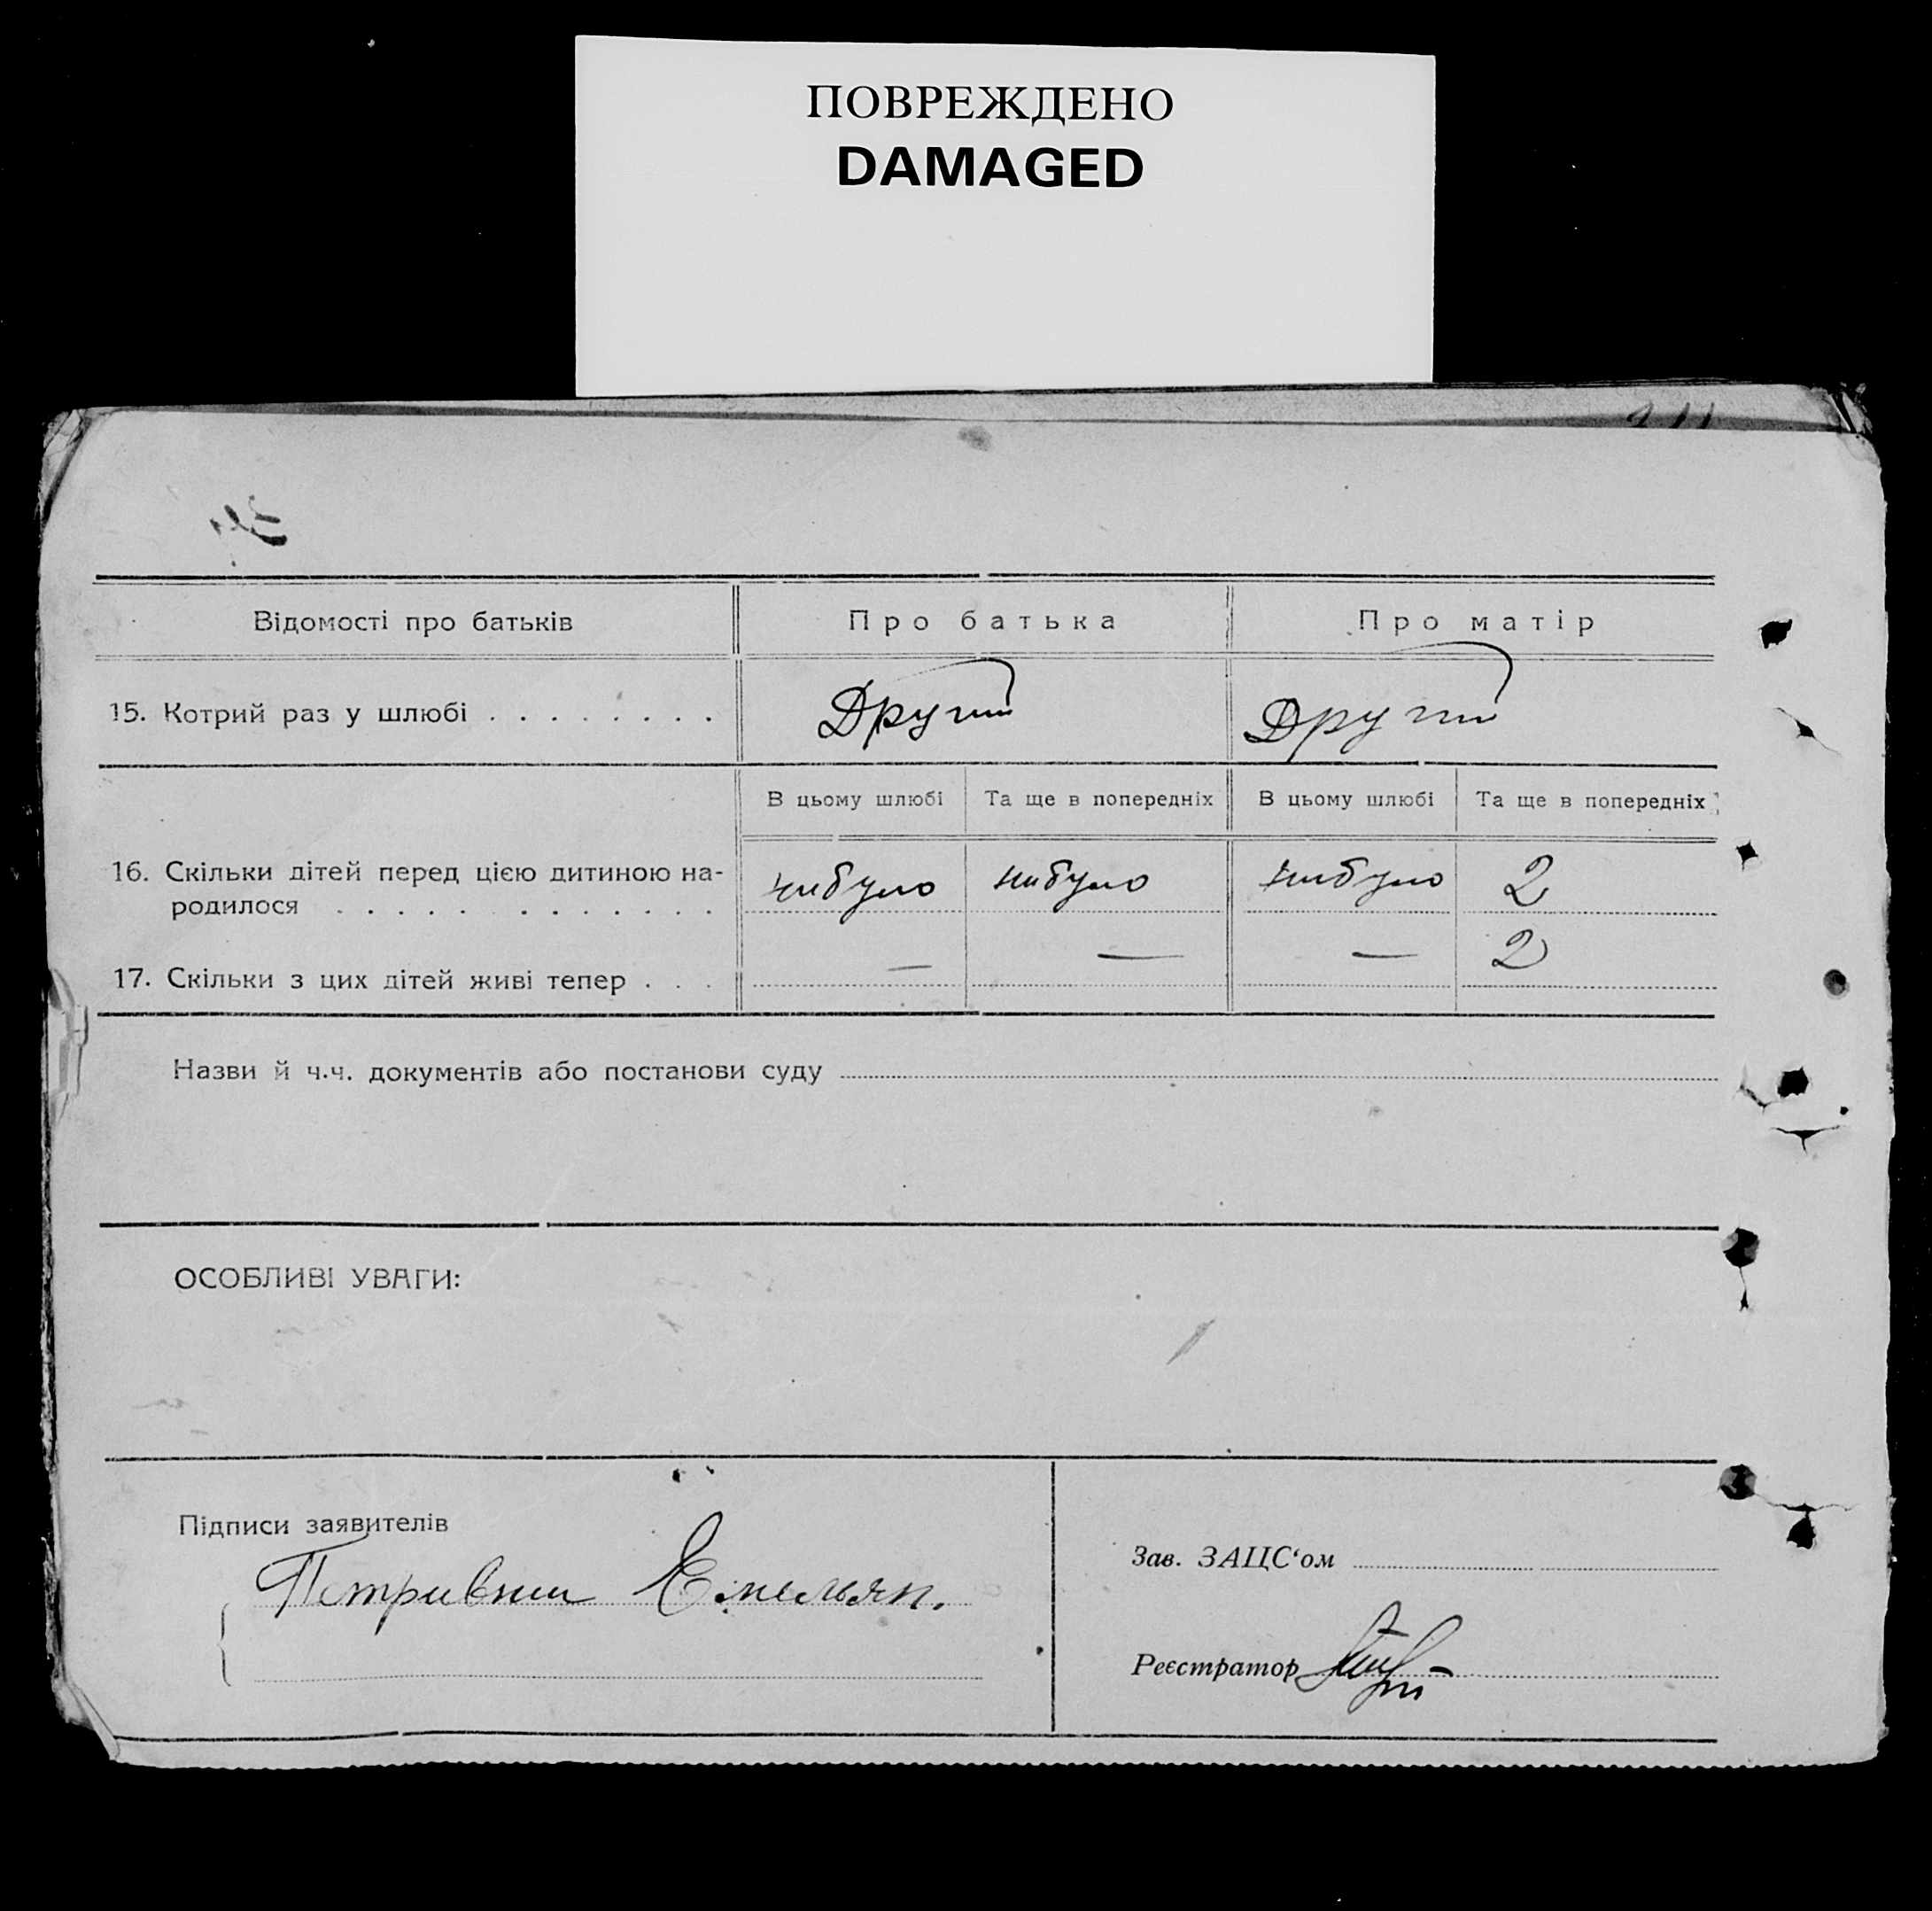 ПОВРЕЖДЕНО
DAMAGED
Відомості про батьків Про батька Про матір
15. Котрий раз у шлюбі . . . . . . . . Другий Другий
В цьому шлюбі Та ще в попередніх В цьому шлюбі Та ще в попередніх
16. Скільки дітей перед цією дитиною на-
родилося . . . . . . . . . . . . . нибуло нибуло нибуло 2
17. Скільки з цих дітей живі тепер . . . — — — 2
Назви й ч.ч. документів або постанови суду
ОСОБЛИВІ УВАГИ:
Підписи заявителів
Емельян.
Зав. ЗАЦС‘ом
Реєстратор